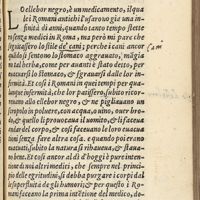 L'Oellebor negro, è un medicamento, il qua
le i Romani antichi l'usarono gia una in-
finità di anni, quando tanto tempo stette
senza medici in Roma, ma però mi pare che
seguitassero lo stile de' cani; perche i cani ancor
quando si sentono lo stomaco aggravato, mágia
no dell'herba, come per avanti è stato detto, per
evacuarsi lo stomaco, & sgravarsi dalle lor in-
firmità. Et cosi i Romani in quei tempi per qua
lunque infermità, che lor pativano, subito ritor-
navano allo ellebor negro, & ne pigliavano un
scropulo in polvere, con acqua, o vino, over bro-
do, & quello li provocava il vomito, & li faceva
andar del corpo, & cosi facevano le loro evacua
tioni senza fare altra cosa. e quando poi erano
evacuati, subito la natura si rihaveva, & stava
bene. Et cosi ancor al dì d'hoggi è parer intentio-
ne di noi altri medici, che sempre nel princi-
pio delle egritudini, si debba purgare i corpi dal
la superfluità de gli humori; & per questo i Ro-
mani facevano la prima intētione del medico, do
can